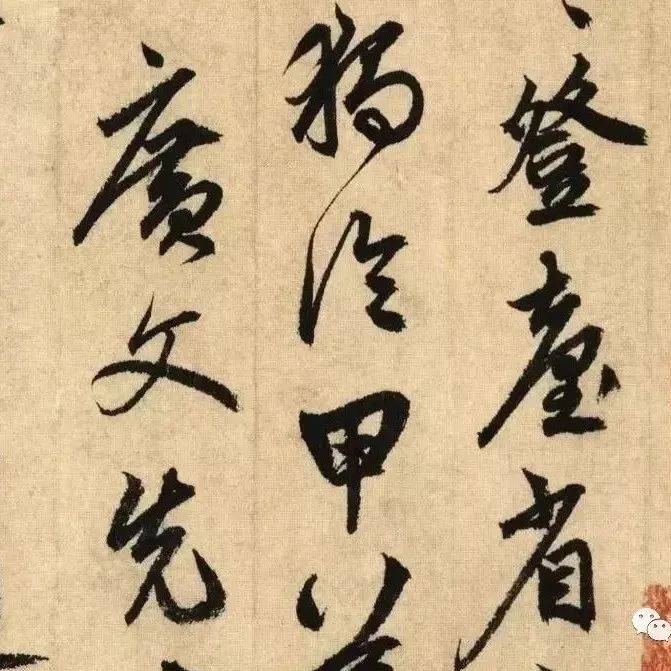 登臺省
獨冷甲
廣文先